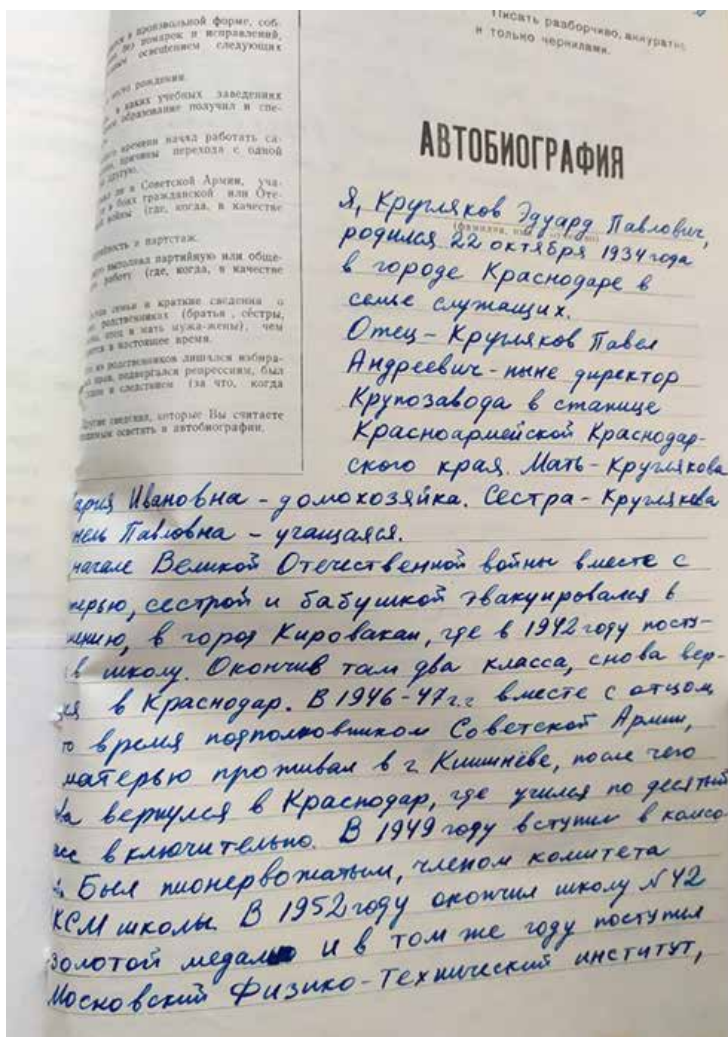 в произвольной форме, соб-
без помарок и исправлений,
освещением следующих
место рождения.
в каких учебных заведениях
образование получил и спе-
времени начал работать са-
причины перехода с одной
другую.
ли в Советской Армии, уча-
в боях гражданской или Оте-
войны (где, когда, в качестве
и партстаж.
выполнял партийную или обще-
работу (где, когда, в качестве
семьи и краткие сведения о
родственниках (братья, сёстры,
отец и мать мужа-жены), чем
в настоящее время.
из родственников лишался избира-
прав, подвергался репрессиям, был
и следствием (за что, когда
Другие сведения, которые Вы считаете
осветить в автобиографии.
Писать разборчиво, аккуратно
и только чернилами.
АВТОБИОГРАФИЯ
Я, Кругляков Эдуард Павлович,
(фамилия,
родился 22 октября 1934 года
в городе Краснодаре в
семье служащих.
Отец – Кругляков Павел
Андреевич – ныне директор
Крупозавода в станице
Красноармейской Краснодар-
ского края. Мать – Круглякова
ария Ивановна – домохозяйка. Сестра – Круглякова
нель Павловна – учащаяся.
начале Великой Отечественной войны вместе с
терью, сестрой и бабушкой эвакуировался в
мению, в город Кировакан, где в 1942 году посту-
в школу. Окончив там два класса, снова вер-
ся в Краснодар. В 1946-47 г.г. вместе с отцом,
то время подполковником Советской Армии,
матерью проживал в г. Кишинёве, после чего
ва вернулся в Краснодар, где учился по десятый
асс включительно. В 1949 году вступил в комсо-
Был пионервожатым, членом комитета
КСМ школы. В 1952 году окончил школу N 42
золотой медалью и в том же году поступил
Московский Физико-Технический институт,